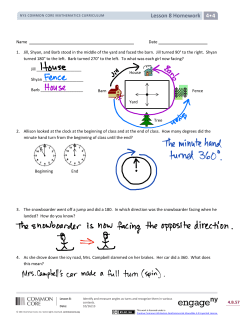 NYS COMMON CORE MATHEMATICS CURRICULUM
Lesson 8 Homework 4•4
Name Date
1. Jill, Shyan, and Barb stood in the middle of the yard and faced the barn. Jill turned 90° to the right. Shyan
turned 180° to the left. Barb turned 270° to the left. To what was each girl now facing?
Jill House
Shyan Fence
Barb House
House
Barn
Fence
Yard
Tree
Barb
2. Allison looked at the clock at the beginning of class and at the end of class. How many degrees did the
minute hand turn from the beginning of class until the end?
The minute hand
turned 360°.
Beginning End
3. The snowboarder went off a jump and did a 180. In which direction was the snowboarder facing when he
landed? How do you know?
The snowboarder is now facing the opposite direction.
4. As she drove down the icy road, Mrs. Campbell slammed on her brakes. Her car did a 360. What does
this mean?
Mrs. Campbell's car made a full turn (spin).
COMMON CORE
Lesson 8:
Date:
engage ny
4.B.57